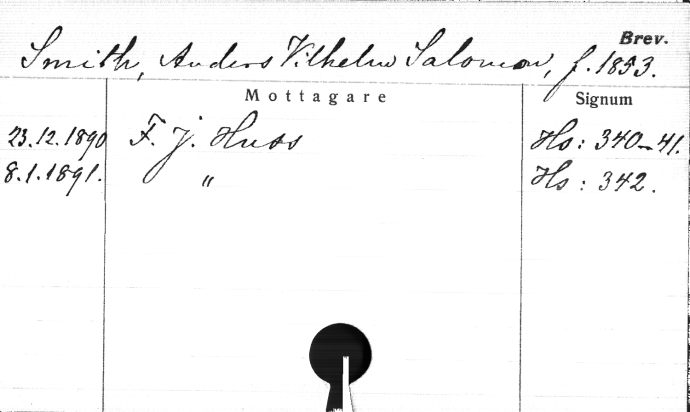 Brev.
Smith, Anders Vilhelm Salomon, f. 1853.
Mottagare Signum
23.12.1890 F. J. Huss Hs: 340-41.
8.1.1891. " Hs: 342.